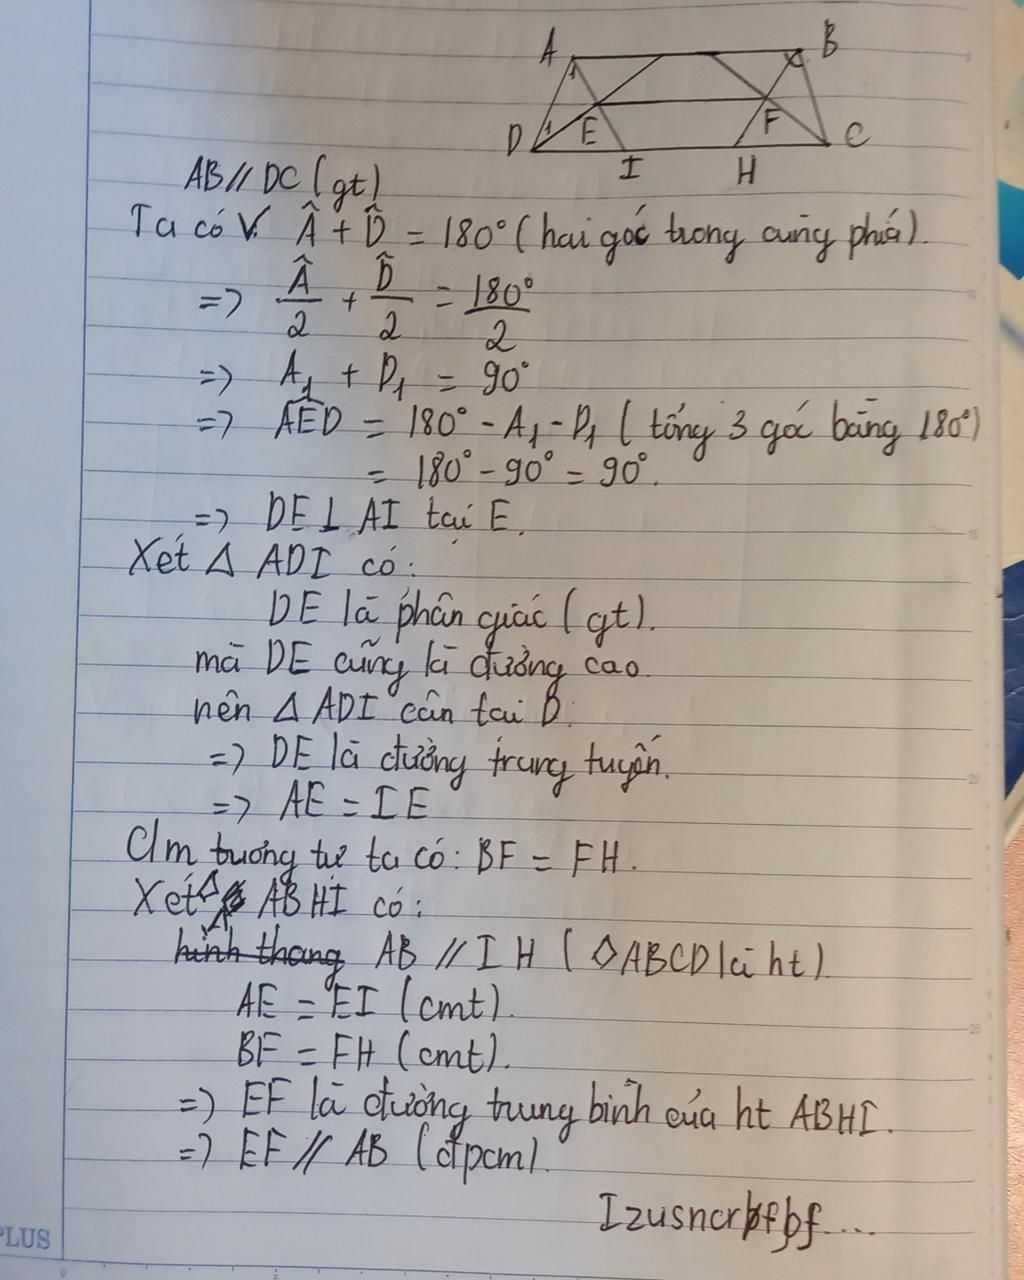 A B
D E F C
I H
AB // DC (gt)
Ta có V. Â + D̂ = 180° (hai góc trong cùng phía).
=> Â/2 + D̂/2 = 180°/2
=> A₁ + D₁ = 90°
=> AÊD = 180° - A₁ - D₁ (tổng 3 góc bằng 180°)
= 180° - 90° = 90°.
=> DE ⊥ AI tại E.
Xét Δ ADI có:
DE là phân giác (gt).
mà DE cũng là đường cao.
nên Δ ADI cân tại D.
=> DE là đường trung tuyến.
=> AE = IE
Cm tương tự ta có: BF = FH.
Xét ABHI có:
hình thang AB // IH (◇ABCD là ht).
AE = EI (cmt).
BF = FH (cmt).
=> EF là đường trung bình của ht ABHI.
=> EF // AB (đpcm).
PLUS